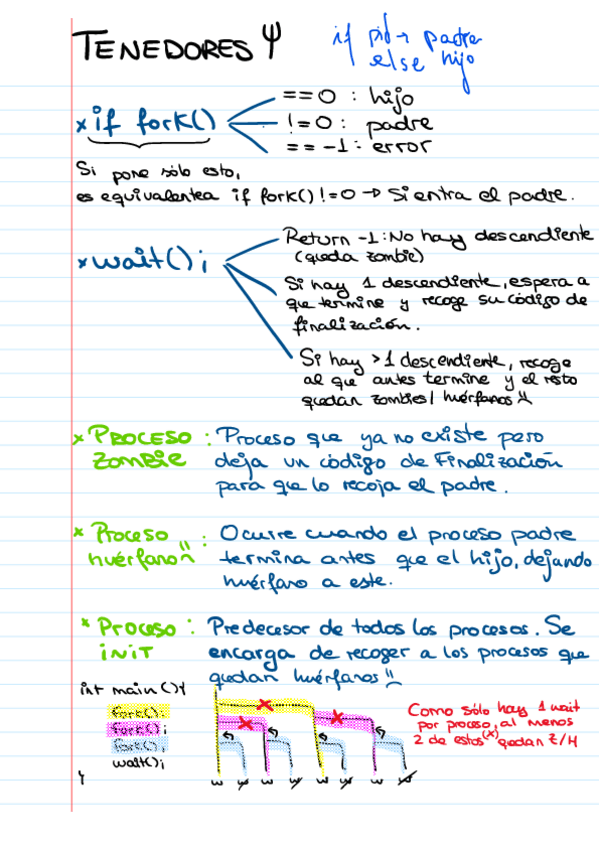 TENEDORES Ψ
if pid → padre
else hijo
x if fork()
== 0 : hijo
!= 0 : padre
== -1 : error
Si pone sólo esto,
es equivalente a if fork() != 0 → Si entra el padre.
x wait();
Return -1: No hay descendiente
(queda zombie)
Si hay 1 descendiente, espera a
que termine y recoge su código de
finalización.
Si hay >1 descendiente, recoge
al que antes termine y el resto
quedan zombies/huérfanos
x PROCESO ZOMBIE : Proceso que ya no existe pero
deja un código de Finalización
para que lo recoja el padre.
x Proceso huérfano : Ocurre cuando el proceso padre
termina antes que el hijo, dejando
huérfano a este.
* Proceso INIT : Predecesor de todos los procesos. Se
encarga de recoger a los procesos que
quedan huérfanos
int main(){
fork();
fork();
fork();
wait();
}
Como sólo hay 1 wait
por proceso, al menos
2 de estos (x) quedan Z/H
w w w w w w w